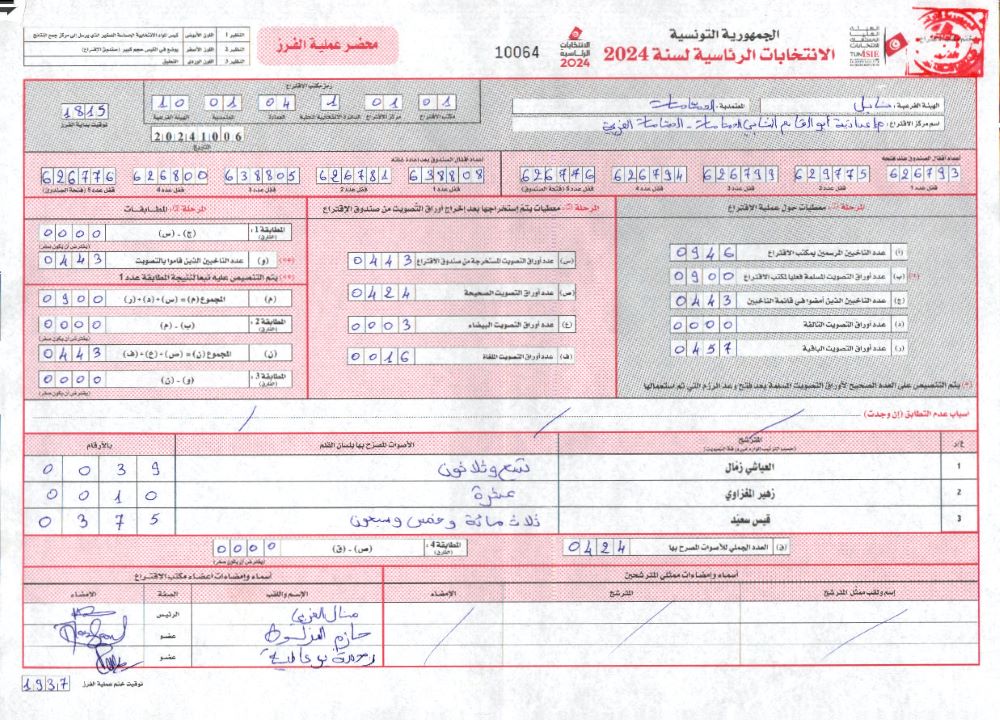 النظير 1 اللون الأبيض كيس المواد الانتخابية الحساسة الصغير الذي يرسل إلى مركز جمع النتائج
النظير 2 اللون الأصفر يوضع في الكيس حجم كبير (صندوق الإقتراع)
النظير 3 اللون الوردي التعليق
محضر عملية الفرز
10064
الانتخابات الرئاسية 2024
الجمهورية التونسية
الانتخابات الرئاسية لسنة 2024
الهيئة العليا المستقلة للانتخابات
TUNISIE
الهيئة الفرعية : نابل
المعتمدية :
اسم مركز الاقتراع :
رمز مكتب الاقتراع
01 01 1 04 01 10
مكتب الاقتراع مركز الاقتراع الدائرة الانتخابية المحلية العمادة المعتمدية الهيئة الفرعية
20241006
التاريخ
1815
توقيت بداية الفرز
أعداد أقفال الصندوق عند فتحه
626793 629775 626799 626794 626776
قفل عدد 1 قفل عدد 2 قفل عدد 3 قفل عدد 4 قفل عدد 5 (فتحة الصندوق)
أعداد أقفال الصندوق بعد إعادة غلقه
638808 626781 638805 626800 626776
قفل عدد 1 قفل عدد 2 قفل عدد 3 قفل عدد 4 قفل عدد 5 (فتحة الصندوق)
معطيات حول عملية الاقتراع
(أ) عدد الناخبين المرسمين بمكتب الاقتراع 0946
(ب) عدد أوراق التصويت المسلمة فعليا لمكتب الاقتراع 0900 (*)
(ج) عدد الناخبين الذين أمضوا في قائمة الناخبين 0443
(د) عدد أوراق التصويت التالفة 0000
(ر) عدد أوراق التصويت الباقية 0457
(*) يتم التنصيص على العدد الصحيح لأوراق التصويت المسلمة بعد فتح وعد الرزم التي تم استعمالها
معطيات يتم إستخراجها بعد إخراج أوراق التصويت من صندوق الإقتراع
(س) عدد أوراق التصويت المستخرجة من صندوق الاقتراع 0443
(ص) عدد أوراق التصويت الصحيحة 0424
(ع) عدد أوراق التصويت البيضاء 0003
(ف) عدد أوراق التصويت الملغاة 0016
المطابقات
المطابقة 1 : (الفارق) (ج) - (س) 0000
(يفترض أن يكون صفر)
(و) عدد الناخبين الذين قاموا بالتصويت 0443 (**)
(**) يتم التنصيص عليه تبعا لنتيجة المطابقة عدد 1
(م) المجموع (م) = (س) + (د) + (ر) 0900
المطابقة 2 : (الفارق) (ب) - (م) 0000
(يفترض أن يكون صفر)
(ن) المجموع (ن) = (ص) + (ع) + (ف) 0443
المطابقة 3 : (الفارق) (و) - (ن) 0000
(يفترض أن يكون صفر)
اسباب عدم التطابق (إن وجدت)
ع/ر المترشح الأصوات المصرح بها بلسان القلم بالأرقام
(حسب الترتيب الوارد في ورقة التصويت)
1 العياشي زمال تسع وثلاثون 0039
2 زهير المغزاوي عشرة 0010
3 قيس سعيد ثلاث مائة وخمس وسبعون 0375
(ق) العدد الجملي للأصوات المصرح بها 0424
المطابقة 4 : (الفارق) (ص) - (ق) 0000
(يفترض أن يكون صفر)
أسماء وإمضاءات ممثلي المترشحين
إسم ولقب ممثل المترشح المترشح الإمضاء
أسماء وإمضاءات أعضاء مكتب الاقتراع
الإسم واللقب الصفة الإمضاء
منال الرئيس
حازم عضو
عضو
توقيت ختم عملية الفرز 1937